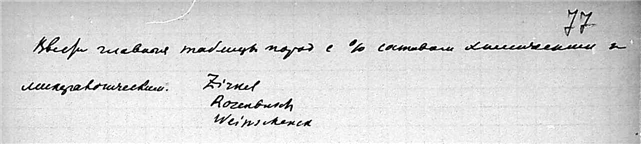 77
Ввести главныя таблицы пород с % составом химическим и
минералогическим. Zirkel
Rosenbusch
Weinschenck